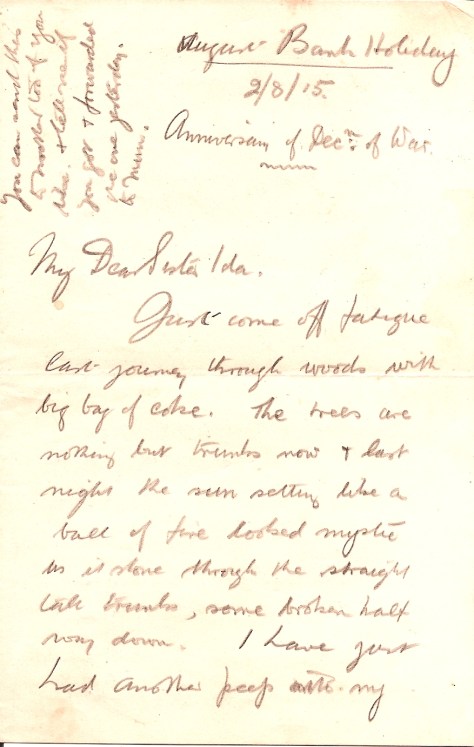 August Bank Holiday
2/8/15.
Anniversary of Decn. of War.
You can send this
to mother too if you
like. & tell me if
you got & forwarded
the one yesterday.
to mum.
My Dear Sister Ida.
Just come off fatigue
last journey through woods with
big bag of coke. The trees are
nothing but trunks now & last
night the sun setting like a
ball of fire looked mystic
as it shone through the straight
tall trunks, some broken half
way down. I have just
had another peep into my